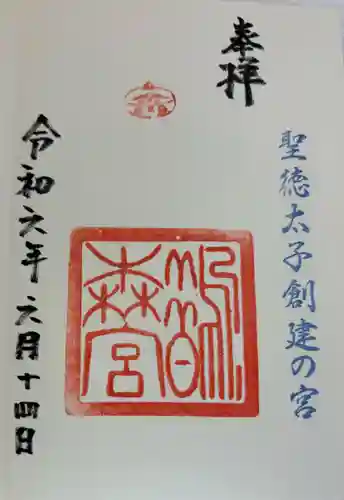 奉拝
聖徳太子創建の宮
鵲森宮
令和六年六月十四日